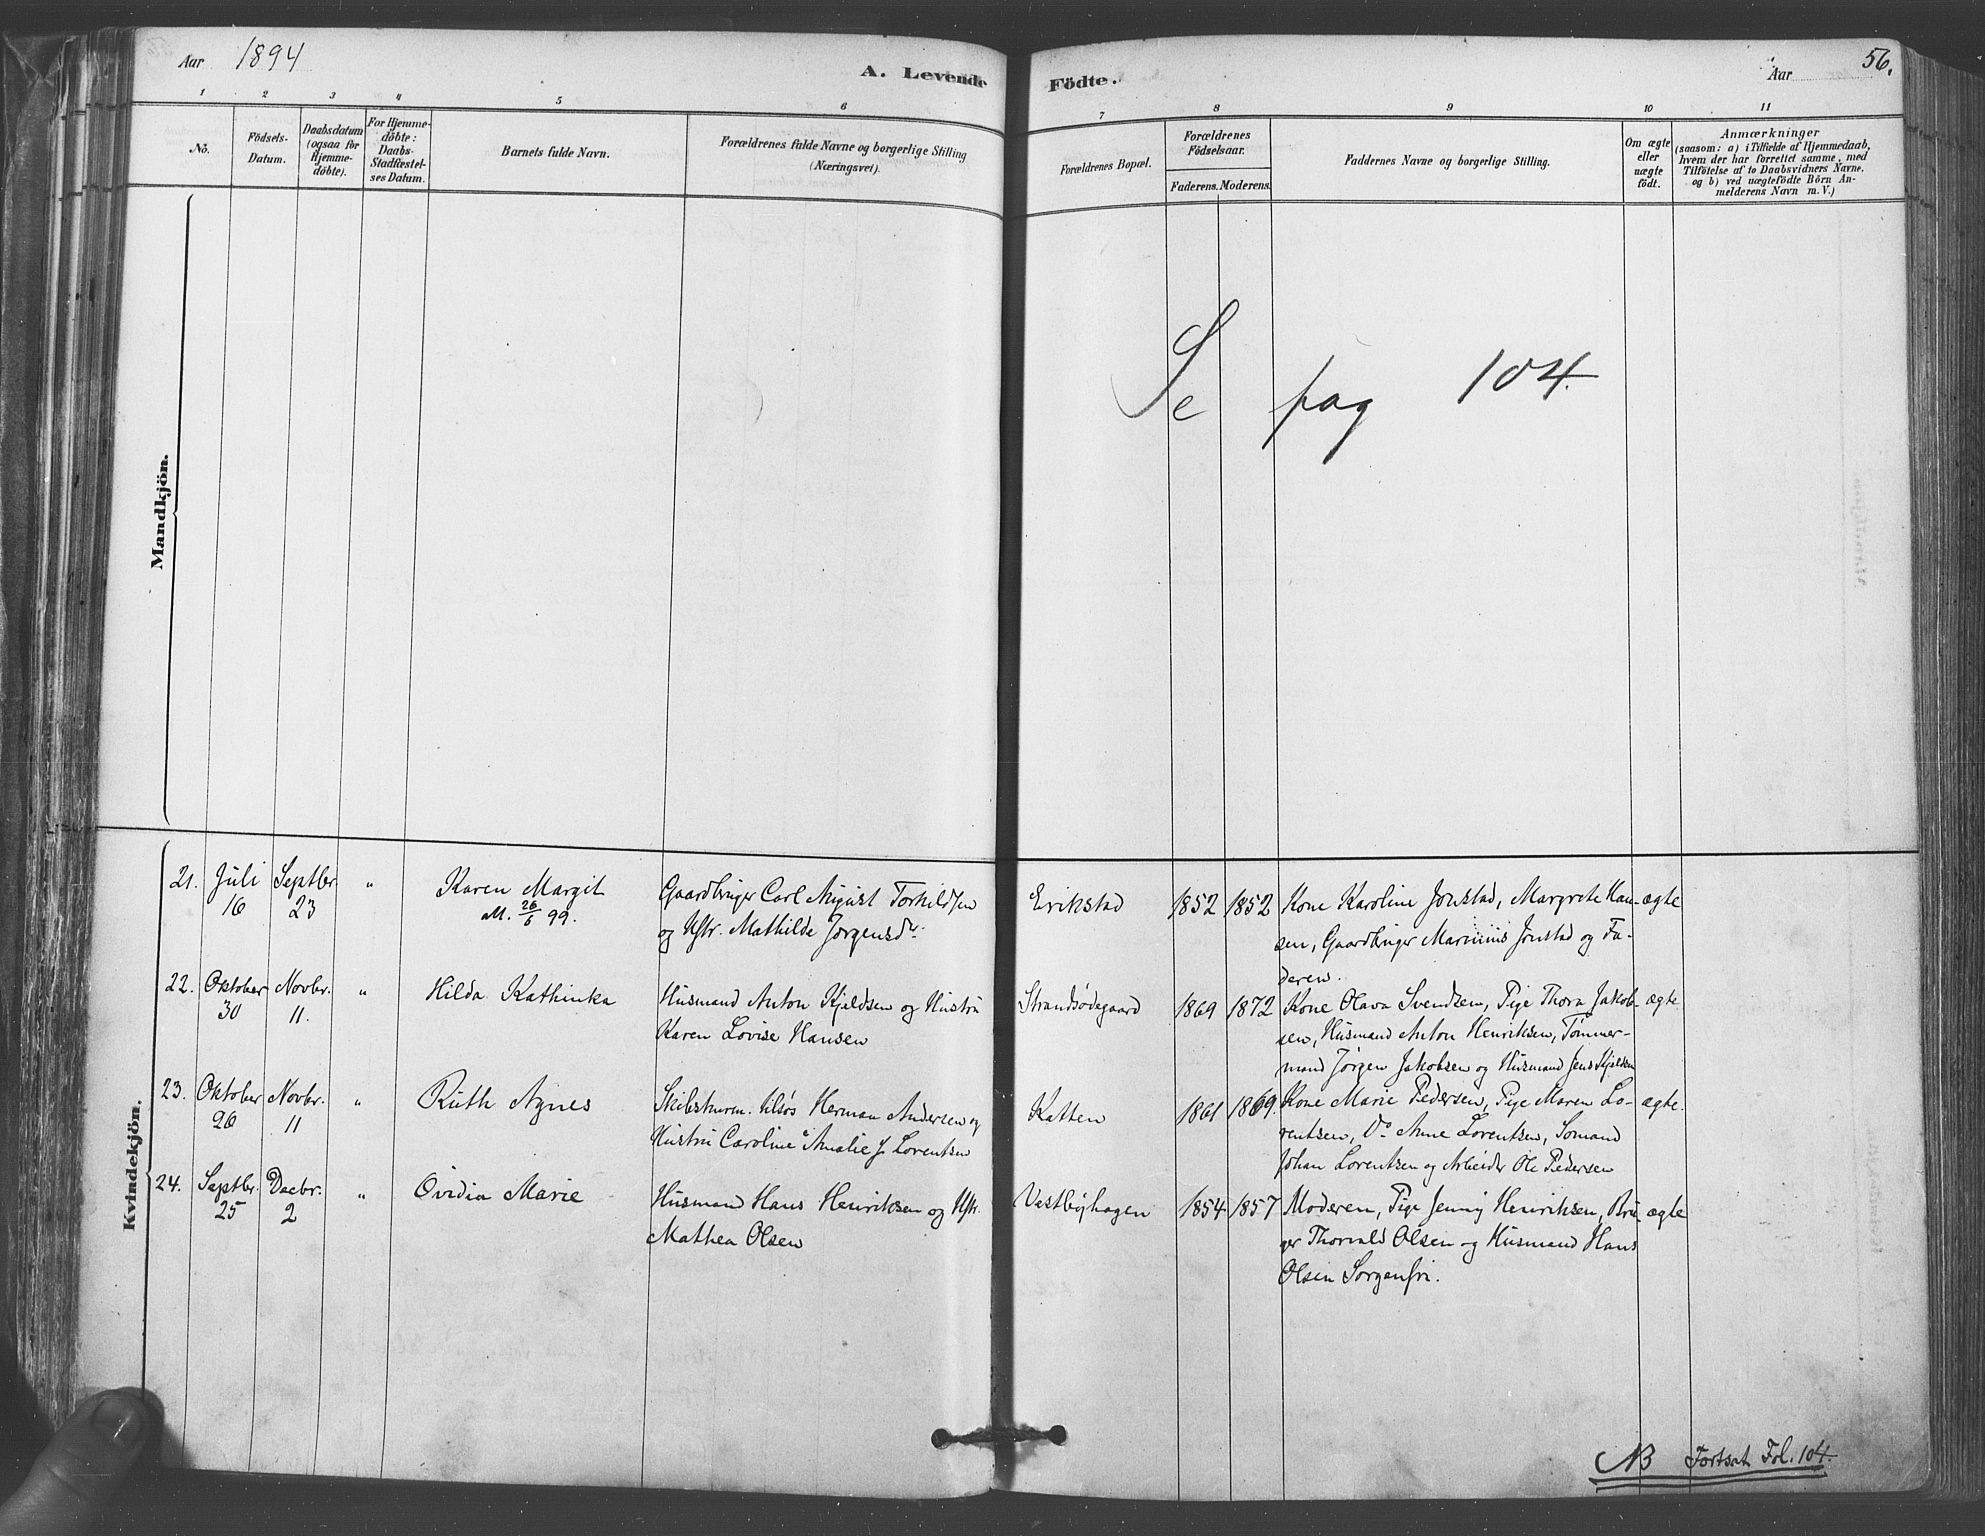 Aar 1894
A. Levende Födte.
Aar
56.
1 2 3 4 5 6 7 8 9 10 11
No.
Födsels-
Datum.
Daabsdatum
(ogsaa for
Hjemme-
döbte).
For Hjemme-
döbte:
Daabs-
Stadfæstel-
ses Datum.
Barnets fulde Navn.
Forældrenes fulde Navne og borgerlige Stilling
(Næringsvei).
Forældrenes Bopæl.
Forældrenes
Födselsaar.
Faderens. Moderens.
Faddernes Navne og borgerlige Stilling.
Om ægte
eller
uægte
födt.
Anmærkninger
(saasom: a) i Tilfælde af Hjemmedaab,
hvem der har forrettet samme, med
Tilföielse af to Daabsvidners Navne,
og b) ved uægtefödte Börn An-
melderens Navn m. V.)
Mandkjön.
Se pag 104.
Kvindekjön.
21. Juli 16 Septbr. 23 " Karen Margit
M. 26/6 99.
Gaardbruger Carl August Torkildsen
og Hstr. Mathilde Jørgensdr.
Erikstad 1852 1852
Kone Karoline Jonstad, Margrete Han-
sen, Gaardbruger Marinius Jonstad og Fa-
deren.
ægte
22. Oktober 30 Novbr. 11. " Hilda Kathinka
Husmand Anton Kjeldsen og Hustru
Karen Lovise Hansen
Strandsødegaard 1869 1872
Kone Olava Svendsen, Pige Thora Jakob-
sen, Husmand Anton Henriksen, Tømmer-
mand Jørgen Jakobsen og Husmand Jens Kjeldsen
ægte
23. Oktober 26 Novbr. 11 " Ruth Agnes
Skibstmrm. tilsøs Herman Andersen og
Hustru Caroline Amalie J Lorentsen
Katten 1861 1869.
Kone Marie Pedersen, Pige Maren Lo-
rentsen, Do Anne Lorentsen, Sømand
Johan Lorentsen og Arbeider Ole Pedersen
ægte.
24. Septbr. 25 Decbr. 2 " Ovidia Marie
Husmand Hans Henriksen og Hstr.
Mathea Olsen
Vestbyhagen 1854 1857
Moderen, Pige Jenny Henriksen, Bru-
ger Thorvald Olsen og Husmand Hans
Olsen Sorgenfri.
ægte
NB Fortsat Fol. 104.